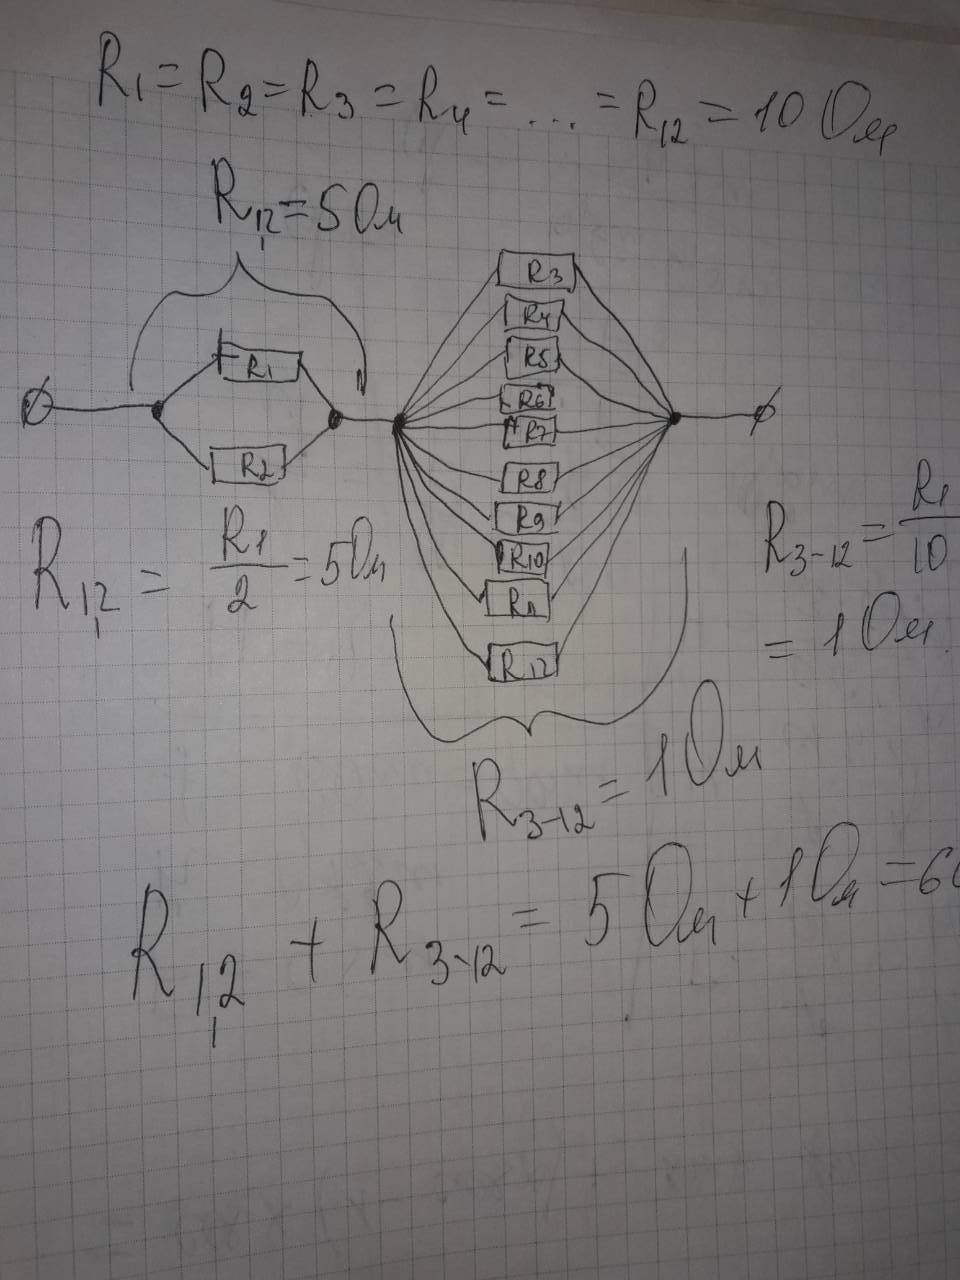 R1 = R2 = R3 = R4 = ... = R12 = 10 Ом
R1,2 = 5 Ом
R3
R4
R5
R1
R6
R7
R2
R8
R9
R10
R11
R12
R1,2 = R1/2 = 5 Ом
R3-12 = R1/10
= 1 Ом
R3-12 = 1 Ом
R1,2 + R3-12 = 5 Ом + 1 Ом = 6